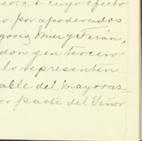 cuyo efecto
por apoderados
y Terán,
don y en tercero
lo representen
able del mayoraz-
por parte del Señor